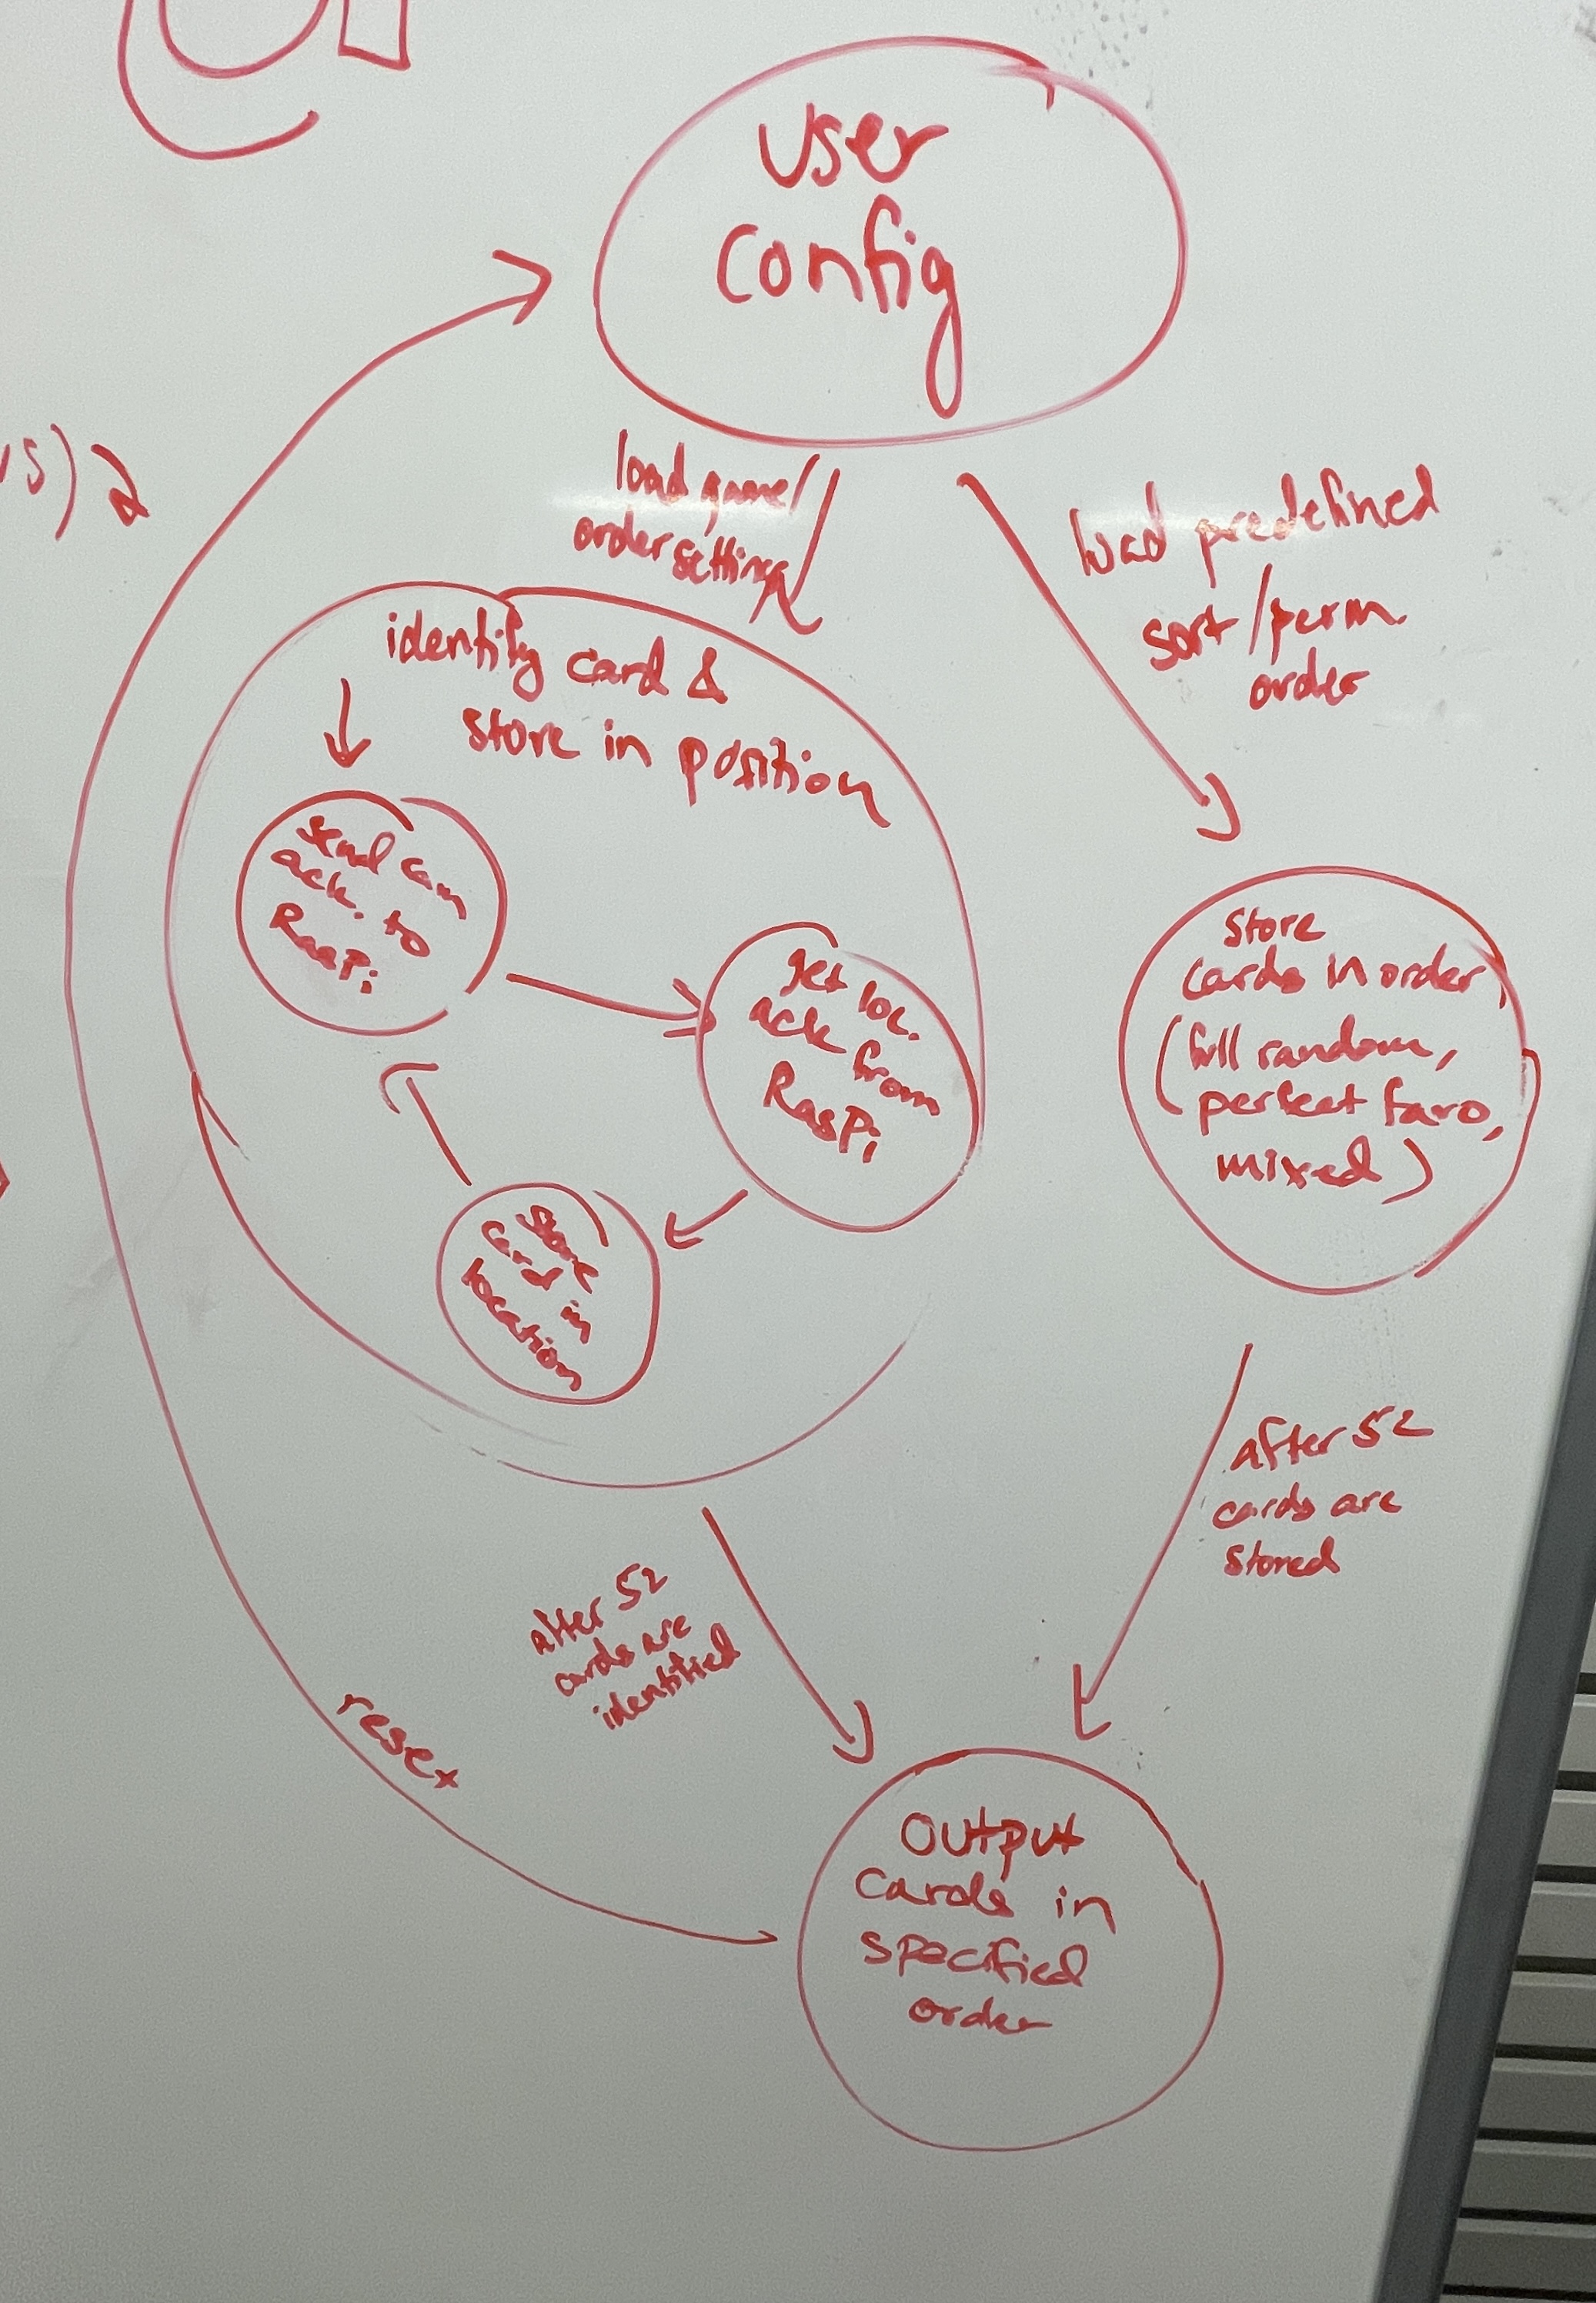 User
config
load game/
order settings
load predefined
sort/perm.
order
identify card &
store in position
send cam
ack. to
RasPi
get loc.
ack from
RasPi
store
card in
location
store
cards in order
(full random,
perfect faro,
mixed)
after 52
cards are
stored
after 52
cards are
identified
reset
Output
Cards in
specified
order